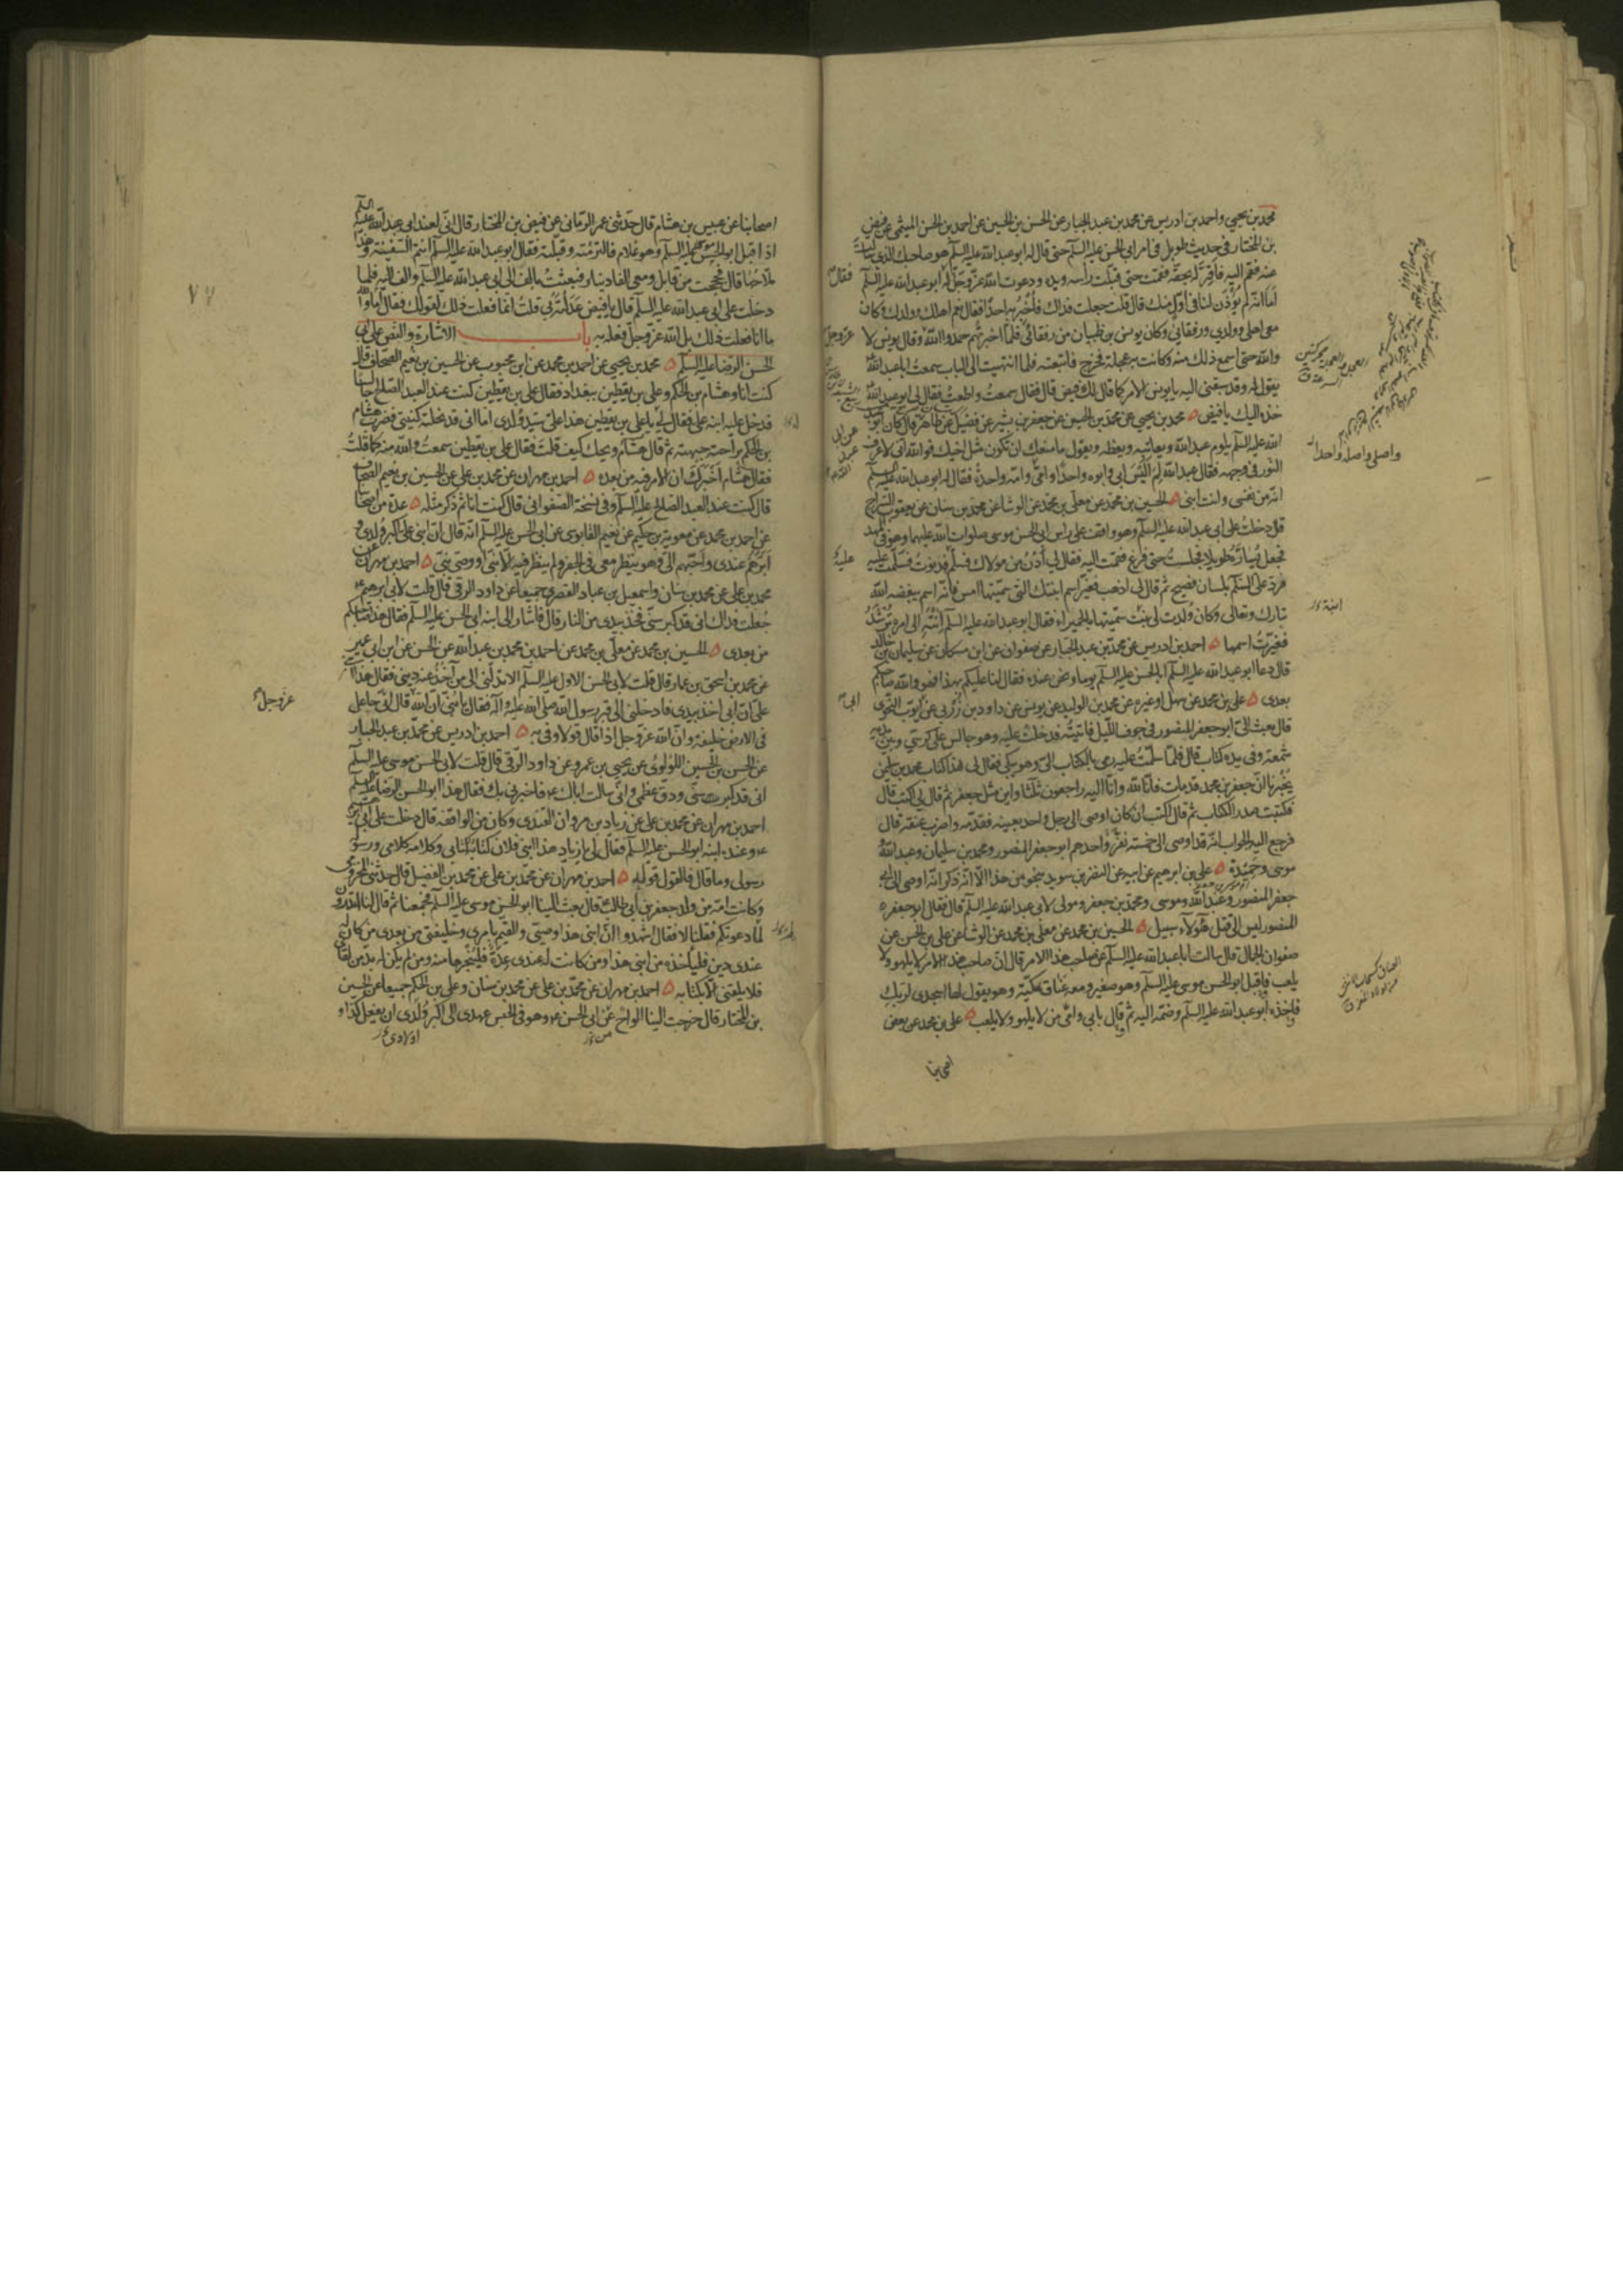 محمد بن يحيى واحمد بن ادريس عن محمد بن عبد الجبار عن الحسن بن الحسين عن احمد بن الحسن الميثمى عن فيض
بن المختار فى حديث طويل فى امر ابى الحسن عليه السلم حتى قال له ابو عبد الله عليه السلم هو صاحبك الذى سالت
عنه فقم اليه فاقر له بحقه فقمت حتى قبلت راسه ويده ودعوت الله عز وجل له فقال ابو عبد الله عليه السلم
اما انه لم يؤذن لنا فى اول منك قال قلت جعلت فداك فاخبر به احدا فقال نعم اهلك وولدك وكان
معى اهلى وولدى ورفقائى وكان يونس بن ظبيان من رفقائى فلما اخبرتهم حمدوا الله وقال يونس لا
والله حتى اسمع ذلك منه وكانت به عجلة فخرج فاتبعته فلما انتهيت الى الباب سمعت ابا عبد الله
يقول له وقد سبقنى اليه يا يونس الامر كما قال لك فيض قال فقال سمعت واطعت فقال لى ابو عبد الله
خذه اليك يا فيض محمد بن يحيى عن محمد بن الحسين عن جعفر بن بشير عن فضيل عن طاهر قال كان ابو عبد
الله عليه السلم يلوم عبد الله ويعاتبه ويعظه ويقول ما منعك ان تكون مثل اخيك فوالله انى لاعرف
النور فى وجهه فقال عبد الله لم اليس ابى وابوه واحدا وامى وامه واحدة فقال له ابو عبد الله عليه السلم
انه من نفسى وانت ابنى الحسين بن محمد عن معلى بن محمد عن الوشا عن محمد بن سنان عن يعقوب السراج
قال دخلت على ابى عبد الله عليه السلم وهو واقف على راس ابى الحسن موسى صلوات الله عليهما وهو فى المهد
فجعل يساره طويلا فجلست حتى فرغ فقمت اليه فقال لى ادن من مولاك فسلم فدنوت فسلمت عليه
فرد على السلم بلسان فصيح ثم قال لى اذهب فغير اسم ابنتك التى سميتها امس فانه اسم يبغضه الله
تبارك وتعالى وكان ولدت لى بنت سميتها بالحميراء فقال ابو عبد الله عليه السلم انته الى امره ترشد
فغيرت اسمها احمد بن ادريس عن محمد بن عبد الجبار عن صفوان عن ابن مسكان عن سليمان بن خالد
قال دعا ابو عبد الله عليه السلم ابا الحسن عليه السلم يوما ونحن عنده فقال لنا عليكم بهذا فهو والله صاحبكم
بعدى على بن محمد عن سهل او غيره عن محمد بن الوليد عن يونس عن داود بن زربى عن ايوب النحوى
قال بعث الى ابو جعفر المنصور فى جوف الليل فاتيته فدخلت عليه وهو جالس على كرسى وبين يديه
شمعة وفى يده كتاب قال فلما سلمت عليه رمى بالكتاب الى وهو يبكى فقال لى هذا كتاب محمد بن سليمن
يخبرنا ان جعفر بن محمد قد مات فانا لله وانا اليه راجعون ثلثا واين مثل جعفر ثم قال لى اكتب قال
فكتبت صدر الكتاب ثم قال اكتب ان كان اوصى الى رجل واحد بعينه فقدمه واضرب عنقه قال
فرجع اليه الجواب انه قد اوصى الى خمسة نفر واحدهم ابو جعفر المنصور ومحمد بن سليمان وعبد الله
موسى وحميدة على بن ابرهيم عن ابيه عن النضر بن سويد بنحو من هذا الا انه ذكر انه اوصى الى ابى
جعفر المنصور وعبد الله وموسى ومحمد بن جعفر ومولى لابى عبد الله عليه السلم قال فقال ابو جعفر
المنصور ليس الى قتل هؤلاء سبيل الحسين بن محمد عن معلى بن محمد عن الوشا عن على بن الحسن عن
صفوان الجمال قال سالت ابا عبد الله عليه السلم عن صاحب هذا الامر قال ان صاحب هذا الامر لا يلهو ولا
يلعب فاقبل ابو الحسن موسى عليه السلم وهو صغير ومعه عناق مكية وهو يقول لها اسجدى لربك
فاخذه ابو عبد الله عليه السلم وضمه اليه ثم قال بابى وامى من لا يلهو ولا يلعب على بن محمد عن بعض
اصحابنا
فقال
عز وجل
عليه
واصلى واصله واحدا
ابنة
اصحابنا عن عبيس بن هشام قال حدثنى عمر الرمانى عن فيض بن المختار قال انى لعند ابى عبد الله عليه السلم
اذ اقبل ابو الحسن موسى عليه السلم وهو غلام فالتزمته وقبلته فقال ابو عبد الله عليه السلم انتم السفينة وهذا
ملاحها قال فحججت من قابل ومعى الفا دينار فبعثت بالف الى ابى عبد الله عليه السلم والف اليه فلما
دخلت على ابى عبد الله عليه السلم قال يا فيض عدلته بى قلت انما فعلت ذلك لقولك فقال اما والله
ما انا فعلت ذلك بل الله عز وجل فعله به باب الاشارة والنص على ابى
الحسن الرضا عليه السلم محمد بن يحيى عن احمد بن محمد عن ابن محبوب عن الحسين بن نعيم الصحاف قال
كنت انا وهشام بن الحكم وعلى بن يقطين ببغداد فقال على بن يقطين كنت عند العبد الصلح جالسا
فدخل عليه ابنه على فقال لى يا على بن يقطين هذا على سيد ولدى اما انى قد نحلته كنيتى فضرب هشام
بن الحكم براحته جبهته ثم قال هشام ويحك كيف قلت فقال على بن يقطين سمعت والله منه كما قلت
فقال هشام اخبرك ان الامر فيه من بعده احمد بن مهران عن محمد بن على عن الحسين بن نعيم الصحاف
قال كنت عند العبد الصالح عليه السلم وفى نسخة الصفوانى قال كنت انا ثم ذكر مثله عدة من اصحابنا
عن احمد بن محمد عن معوية بن حكيم عن نعيم القابوسى عن ابى الحسن عليه السلم انه قال ان ابنى على اكبر ولدى و
ابرهم عندى واحبهم الى وهو ينظر معى فى الجفر ولم ينظر فيه الا نبى او وصى نبى احمد بن مهران عن
محمد بن على عن محمد بن سنان واسمعيل بن عباد القصرى جميعا عن داود الرقى قال قلت لابى ابرهيم
جعلت فداك انى قد كبر سنى فخذ بيدى من النار قال فاشار الى ابنه ابى الحسن عليه السلم فقال هذا صاحبكم
من بعدى الحسين بن محمد عن معلى بن محمد عن احمد بن محمد بن عبد الله عن الحسن عن ابن ابى عمير
عن محمد بن اسحق بن عمار قال قلت لابى الحسن الاول عليه السلم الا تدلنى الى من اخذ عنه دينى فقال هذا ابنى
على ان ابى اخذ بيدى فادخلنى الى قبر رسول الله صلى الله عليه وآله فقال يا بنى ان الله قال انى جاعل
فى الارض خليفة وان الله عز وجل اذا قال قولا وفى به احمد بن ادريس عن محمد بن عبد الجبار
عن الحسن بن الحسين اللؤلؤى عن يحيى بن عمرو عن داود الرقى قال قلت لابى الحسن موسى عليه السلم
انى قد كبرت سنى ودق عظمى وانى سالت اباك فاخبرنى بك فقال هذا ابو الحسن الرضا عليه السلم
احمد بن مهران عن محمد بن على عن زياد بن مروان القندى وكان من الواقفة قال دخلت على ابى ابرهيم
وعنده ابنه ابو الحسن عليه السلم فقال لى يا زياد هذا ابنى فلان كتابه كتابى وكلامه كلامى ورسوله
رسولى وما قال فالقول قوله احمد بن مهران عن محمد بن على عن محمد بن الفضيل قال حدثنى المخزومى
وكانت امه من ولد جعفر بن ابى طالب قال بعث الينا ابو الحسن موسى عليه السلم فجمعنا ثم قال لنا اتدرون
لما دعوتكم فقلنا لا فقال اشهدوا ان ابنى هذا وصيى والقيم بامرى وخليفتى من بعدى من كان له
عندى دين فلياخذه من ابنى هذا ومن كانت له عندى عدة فلينجزها منه ومن لم يكن له بد من لقائى
فلا يلقنى الا بكتابه احمد بن مهران عن محمد بن على عن محمد بن سنان وعلى بن الحكم جميعا عن الحسين
بن المختار قال خرجت الينا الواح من ابى الحسن وهو فى الحبس عهدى الى اكبر ولدى ان يفعل كذا و
اولادى
عز وجل